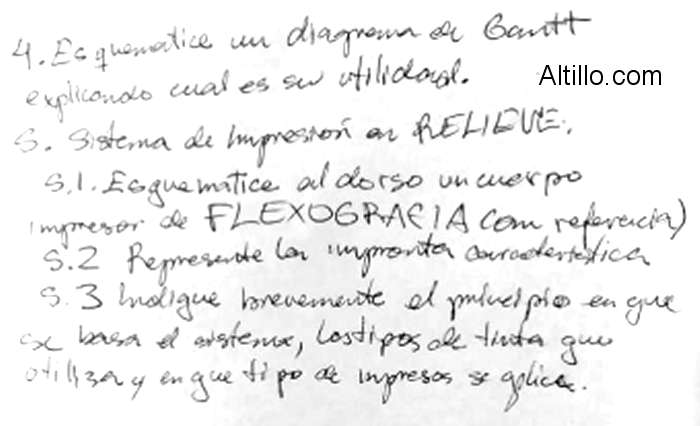 4. Esquematice un diagrama de Gantt
explicando cual es su utilidad.
Altillo.com
5. Sistema de Impresión en RELIEVE.
5.1. Esquematice al dorso un cuerpo
impresor de FLEXOGRAFIA (con referencia)
5.2 Represente la impronta característica
5.3 Indique brevemente el principio en que
se basa el sistema, los tipos de tinta que
utiliza y en que tipo de impresos se aplica.